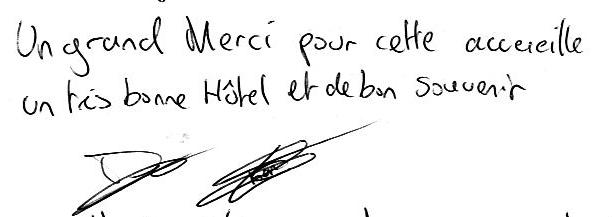 Un grand Merci pour cette accereille
un très bonne Hôtel et de bon souvenir